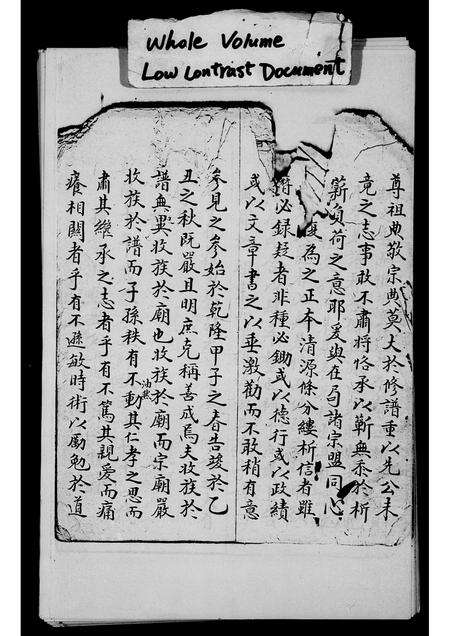 Whole Volume
Low Contrast Document
尊祖典敬宗典莫大於修譜重以先公未
竟之志事敢不肅將恪承以蘄無忝於析
薪負荷之意耶爰與在局諸宗盟同心
為之正本清源條分縷析信者雖
必錄疑者非種必鋤或以德行或以政績
或以文章書之以垂激勸而不敢稍有意
參見之參始於乾隆甲子之春告竣於乙
丑之秋既嚴且明庶克稱善成焉夫收族於
譜無異收族於廟也收族於廟而宗廟嚴
收族於譜而子孫秩有不動其仁孝之思而
油然
肅其繼承之志者乎有不篤其親愛而痛
癢相關者乎有不遜敏時術以勵勉於道